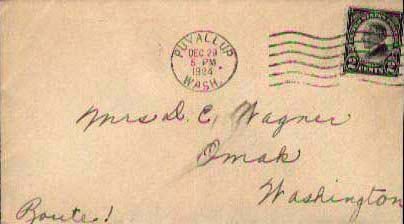 PUYALLUP
DEC 29
5 PM
1924
WASH.
2 CENTS 2
Mrs D. C. Wagner
Omak
Washington
Route 1